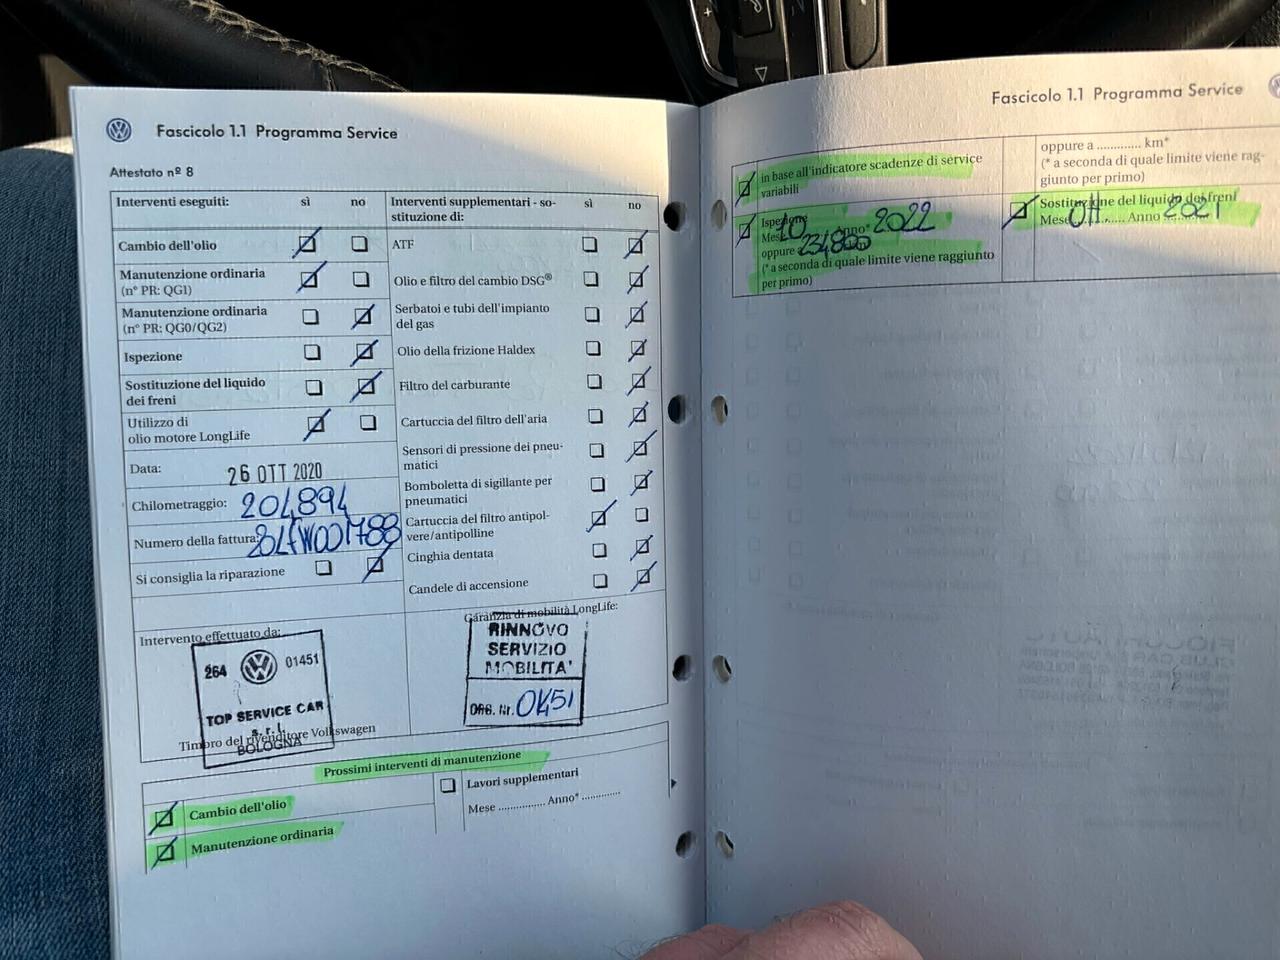 Fascicolo 1.1 Programma Service
Attestato nº 8
Interventi eseguiti: sì no
Cambio dell'olio
Manutenzione ordinaria
(nº PR: QG1)
Manutenzione ordinaria
(nº PR: QG0/QG2)
Ispezione
Sostituzione del liquido
dei freni
Utilizzo di
olio motore LongLife
Data: 26 OTT 2020
Chilometraggio: 204894
Numero della fattura:
Si consiglia la riparazione
Intervento effettuato da:
264 01451
TOP SERVICE CAR
s.r.l.
BOLOGNA
Timbro del rivenditore Volkswagen
Interventi supplementari - so-
stituzione di: sì no
ATF
Olio e filtro del cambio DSG®
Serbatoi e tubi dell'impianto
del gas
Olio della frizione Haldex
Filtro del carburante
Cartuccia del filtro dell'aria
Sensori di pressione dei pneu-
matici
Bomboletta di sigillante per
pneumatici
Cartuccia del filtro antipol-
vere/antipolline
Cinghia dentata
Candele di accensione
Garanzia di mobilità LongLife:
RINNOVO
SERVIZIO
MOBILITA'
ORG. Nr. 01451
Prossimi interventi di manutenzione
Cambio dell'olio
Manutenzione ordinaria
Lavori supplementari
Mese ................ Anno* .............
Fascicolo 1.1 Programma Service
in base all'indicatore scadenze di service
variabili
Ispezione
Mese 10 Anno* 2022
oppure a 234800
(* a seconda di quale limite viene raggiunto
per primo)
oppure a ............. km*
(* a seconda di quale limite viene rag-
giunto per primo)
Sostituzione del liquido dei freni
Mese Ott Anno 2021